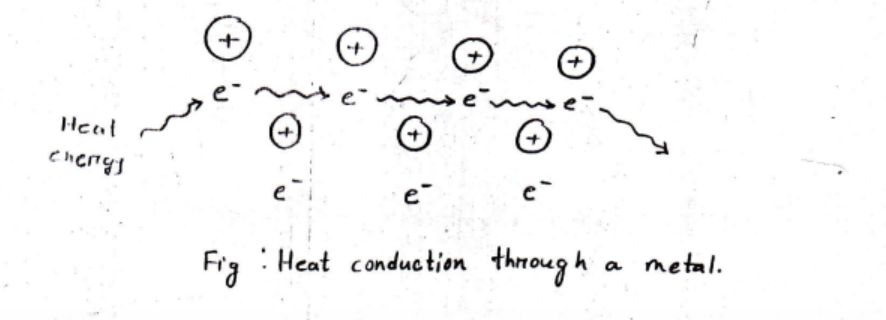 + + + +
e⁻ e⁻ e⁻ e⁻
Heat
energy
+ + +
e⁻ e⁻ e⁻
Fig : Heat conduction through a metal.